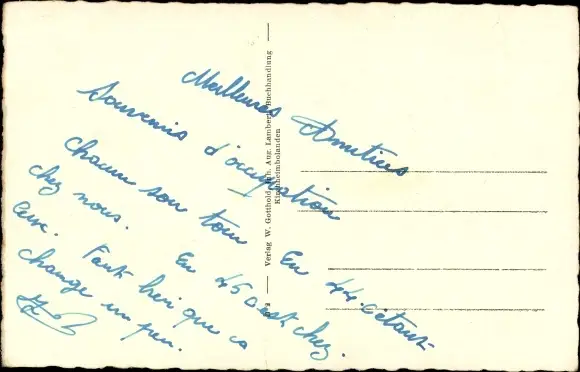 Meilleures Amitiés
Souvenirs d'occupation
chacun son tour En 44 c'etait
chez nous. En 45 c'est chez
eux. Faut bien que ca
change un peu.
Verlag W. Gotthold, Inh. Aug. Lambert, Buchhandlung
Kirchheimbolanden